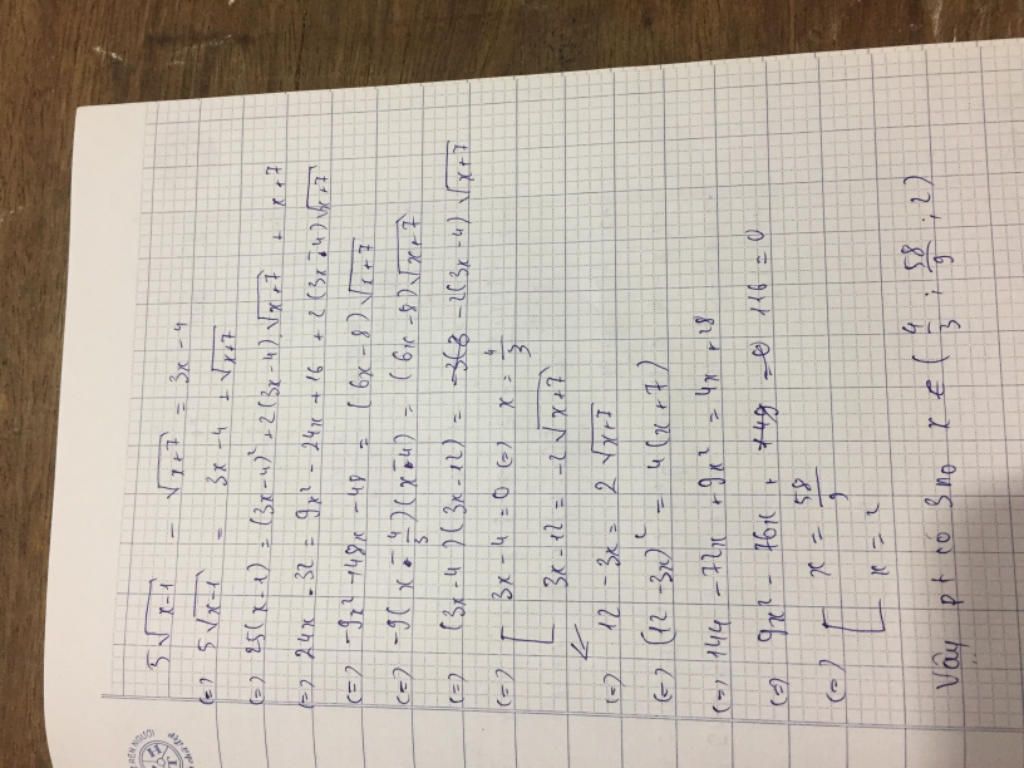 5√(x-1) - √(x+7) = 3x - 4
(=) 5√(x-1) = 3x - 4 + √(x+7)
(=) 25(x-1) = (3x-4)² + 2(3x-4).√(x+7) + x+7
(=) 24x - 32 = 9x² - 24x + 16 + 2(3x-4)√(x+7)
(=) -9x² - 148x - 48 = (6x-8)√(x+7)
(=) -9(x - 4/3)(x-4) = (6x-8)√(x+7)
(=) (3x-4)(3x-12) = -2(3x-4)√(x+7)
(=) [ 3x-4 = 0 (=) x = 4/3
3x-12 = -2√(x+7)
(=) 12 - 3x = 2√(x+7)
(=) (12-3x)² = 4(x+7)
(=) 144 - 72x + 9x² = 4x + 28
(=) 9x² - 76x + 116 = 0
(=) [ x = 58/9
x = 2
Vậy pt có 3 no x ∈ (4/3 ; 58/9 ; 2)